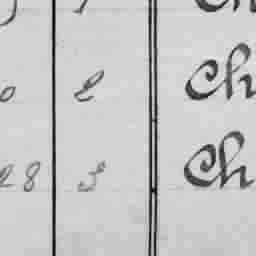 Ch
0 2 Ch
28 3 Ch